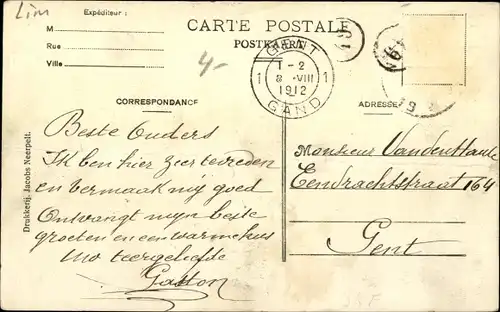 Lim
Expéditeur :
M
Rue
Ville
4-
CARTE POSTALE
POSTKAART
GENT
1 1-2 1
8 VIII
1912
GAND
19
CORRESPONDANCE
ADRESSE
Drukkerij. Jacobs Neerpelt.
Beste Ouders
Ik ben hier zeer tevreden
en vermaak mij goed
Ontvangt mijn beste
groeten en een warme kus
Uw teergeliefde
Gaston
Monsieur
Eendrachtstraat 164
Gent